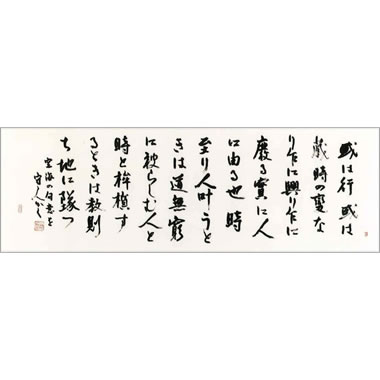 或は行 或は
蔵 時の變な
り乍に興り乍に
廢る實に人
に由る也 時
至り人叶うと
きは道無窮
に被らしむ人と
時と桙楯す
るときは教則
ち地に墜つ
空海の句意を